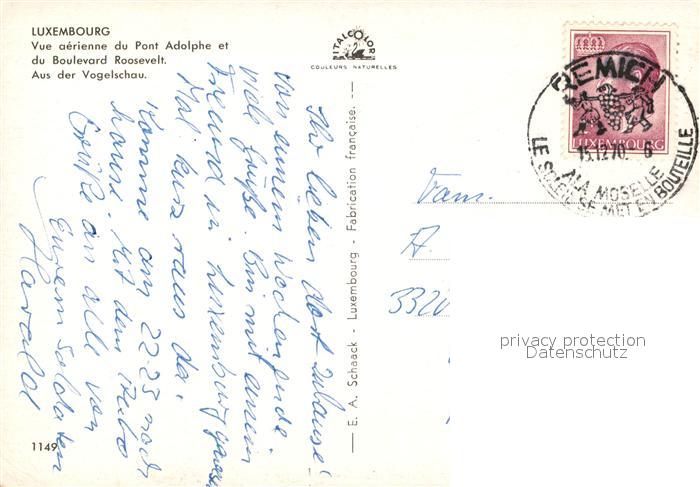 LUXEMBOURG
Vue aérienne du Pont Adolphe et
du Boulevard Roosevelt.
Aus der Vogelschau.
ITALCOLOR
COULEURS NATURELLES
REMICH
LUXEMBOURG
15.12.70. 6
A LA MOSELLE
LE SOLEIL SE MET EN BOUTEILLE
Ihr lieben dort Zuhause!
von einem Wochenende
viele Grüße. Bin mit einem
Freund in Luxemburg
Mal kurz raus da.
Komme am 22-23 nach
hause. Mit dem
Grüße an alle von
Eurem Soldaten
Harald
E. A. Schaack - Luxembourg - Fabrication française.
Fam.
A.
3320
privacy protection
Datenschutz
1149